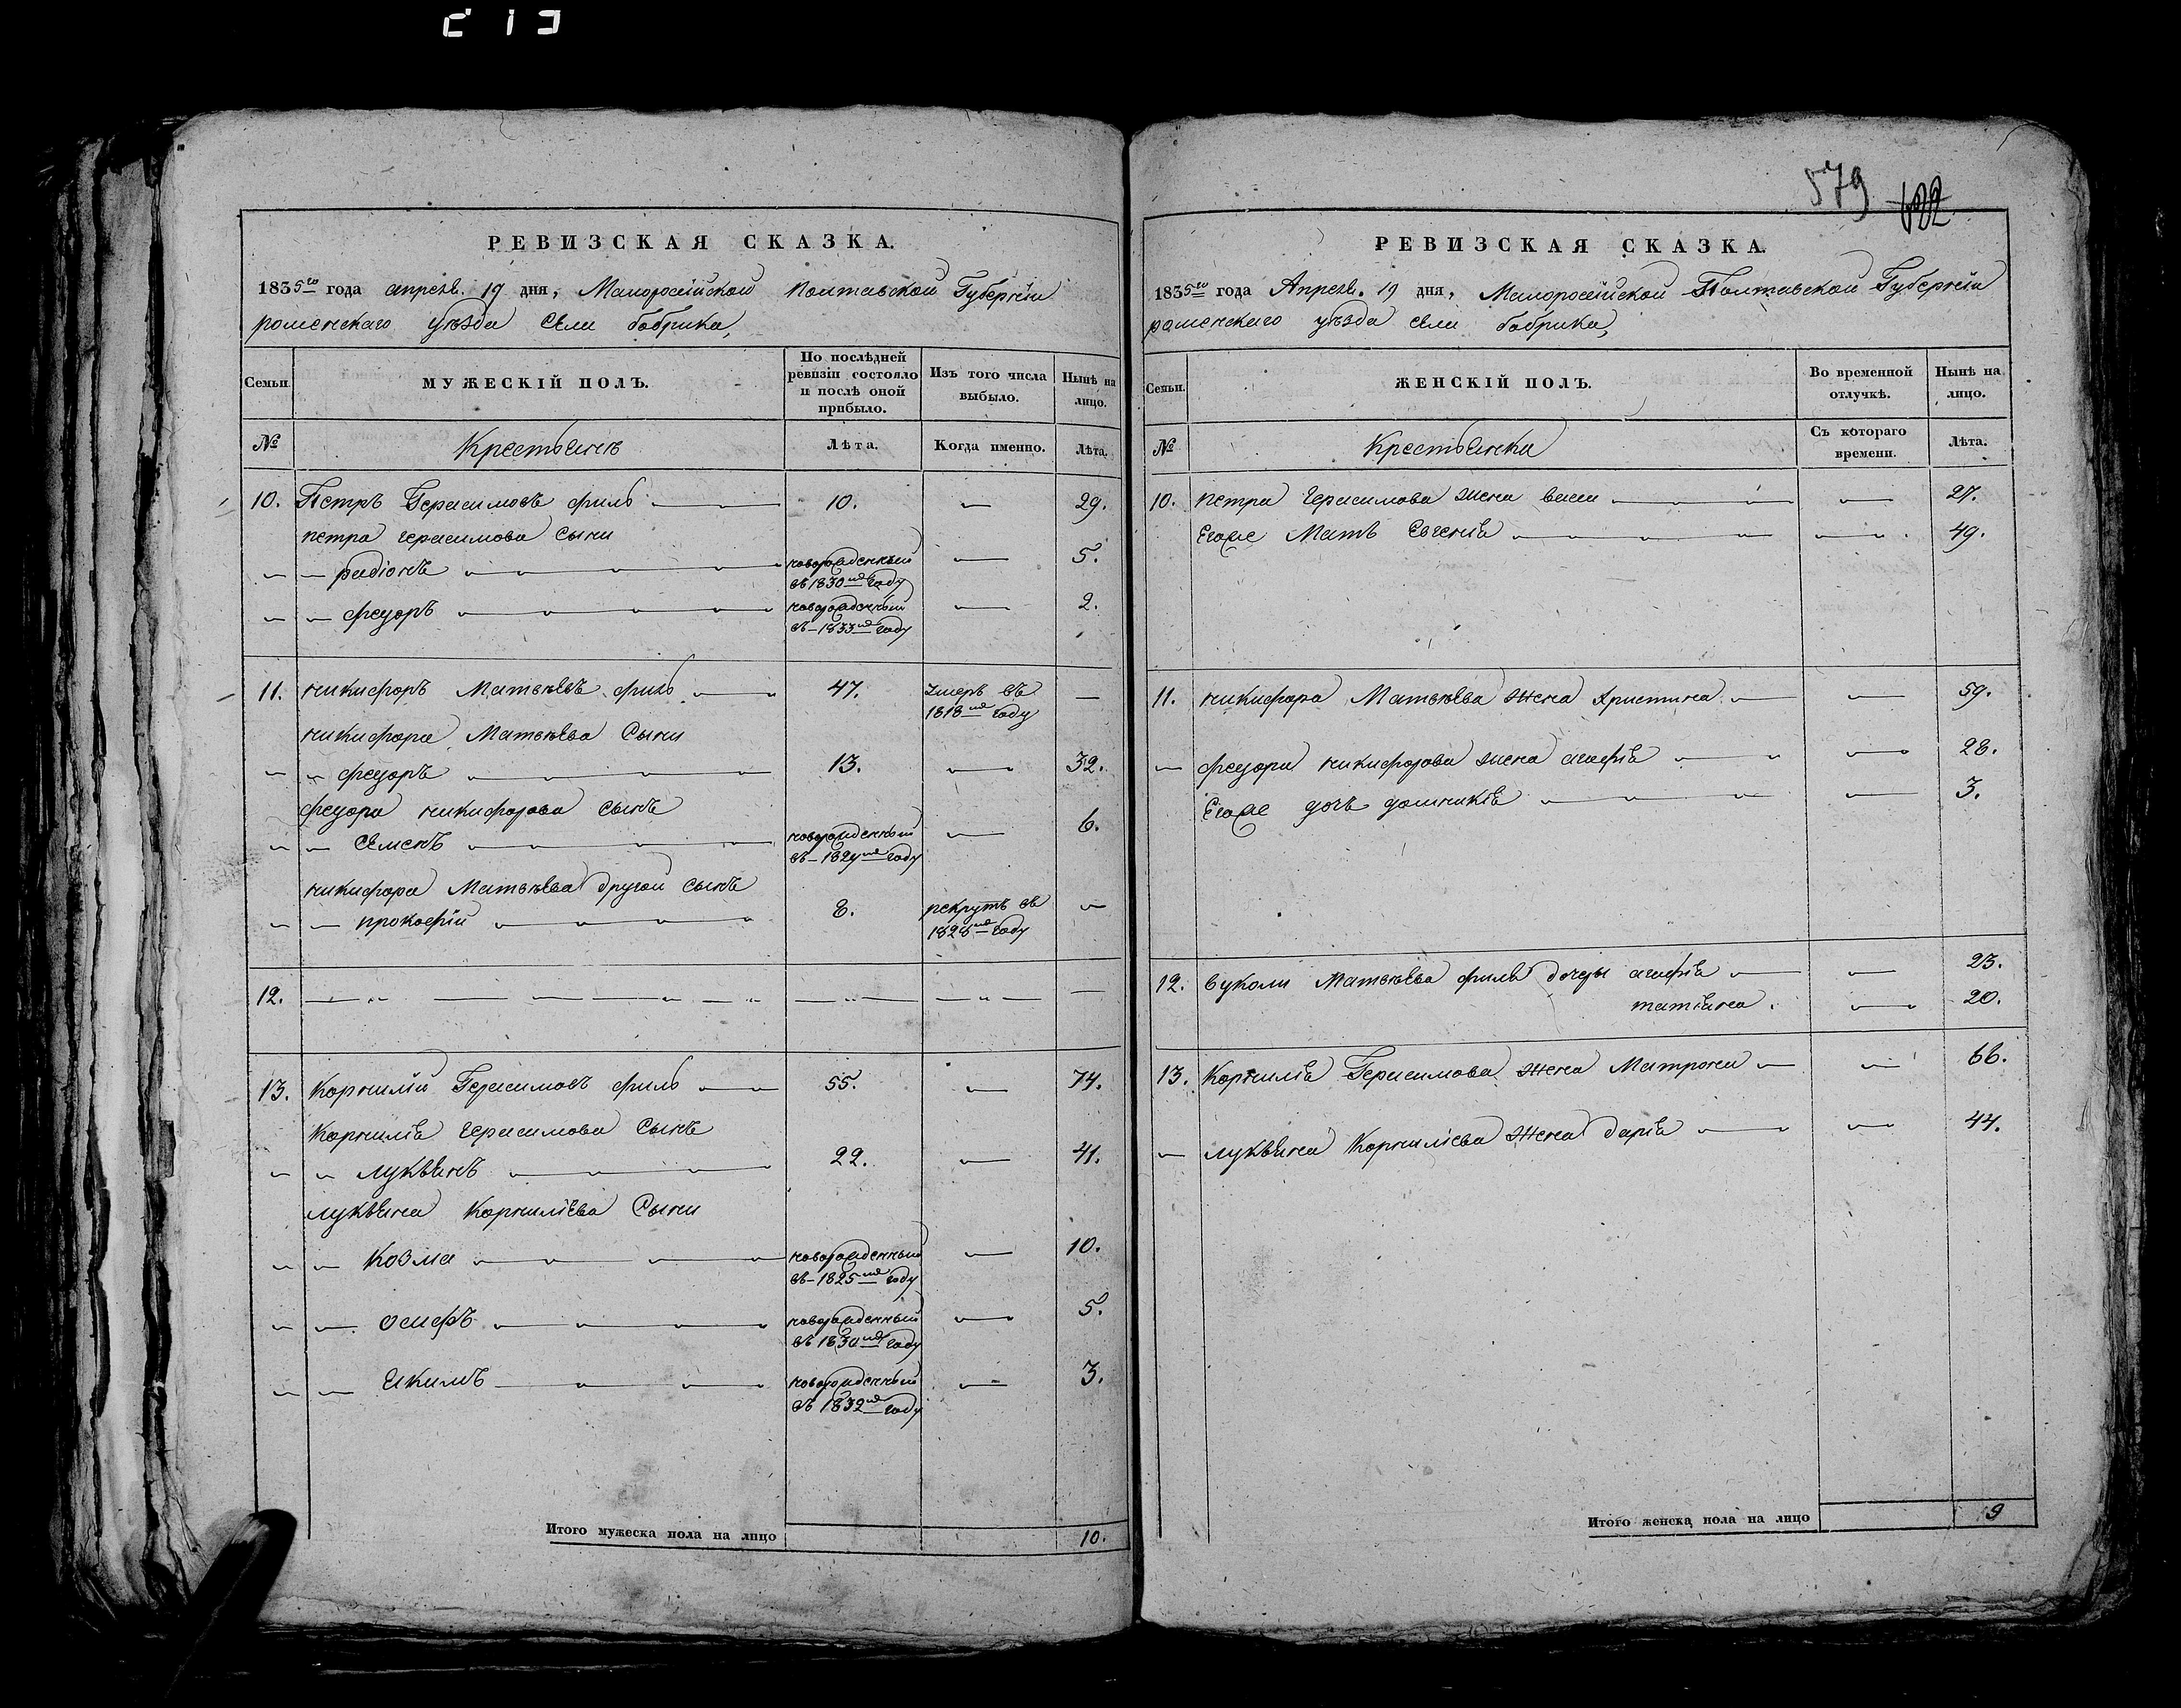 РЕВИЗСКАЯ СКАЗКА.
1835го года апреля 19 дня, Малоросійской полтавской Губерніи
роменскаго уѣзда Села бобрика,
Семьи.
МУЖЕСКІЙ ПОЛЪ.
По послѣдней ревизіи состояло и послѣ оной прибыло.
Изъ того числа выбыло.
Нынѣ на лицо.
№
Крестьянѣ
Лѣта.
Когда именно.
Лѣта.
10. Петръ Герасимовъ филь 10. 29.
петра герасимова Сыны
радіонъ новорожденный въ 1830мъ году 5.
феудръ новорожденный въ 1833мъ году 2.
11. никифоръ Матвѣевъ филь 47. умеръ въ 1818мъ году
никифора Матвѣева Сыны
феудръ 13. 32.
феудра никифорова сынъ
Семенъ новорожденный въ 1829мъ году 6.
никифора Матвѣева другой сынъ
прокофій 8. рекрутъ въ 1828мъ году
12.
13. Корнилій Герасимовъ филь 55. 74.
Корнилія герасимова Сынъ
лукянъ 22. 41.
лукяна Корниліева Сыны
Козма новорожденный въ 1825мъ году 10.
осифъ новорожденный въ 1830мъ году 5.
Якимъ новорожденный въ 1832мъ году 3.
Итого мужеска пола на лицо 10.
579
РЕВИЗСКАЯ СКАЗКА.
1835го года Апреля 19 дня, Малоросійской Полтавской Губерніи
роменскаго уѣзда села бобрика,
Семьи.
ЖЕНСКІЙ ПОЛЪ.
Во временной отлучкѣ.
Нынѣ на лицо.
№
Крестьянки
Съ котораго времени.
Лѣта.
10. петра герасимова жена васа 27.
Егоже Мать Евгенія 49.
11. никифора Матвѣева жена христина 59.
феудра никифорова жена агафія 28.
Егоже дочь домникія 3.
12. вукола Матвѣева филя дочеры агафія 23.
татіяна 20.
13. Корнилія Герасимова жена Матрона 66.
лукяна Корниліева жена дарія 44.
Итого женска пола на лицо 9